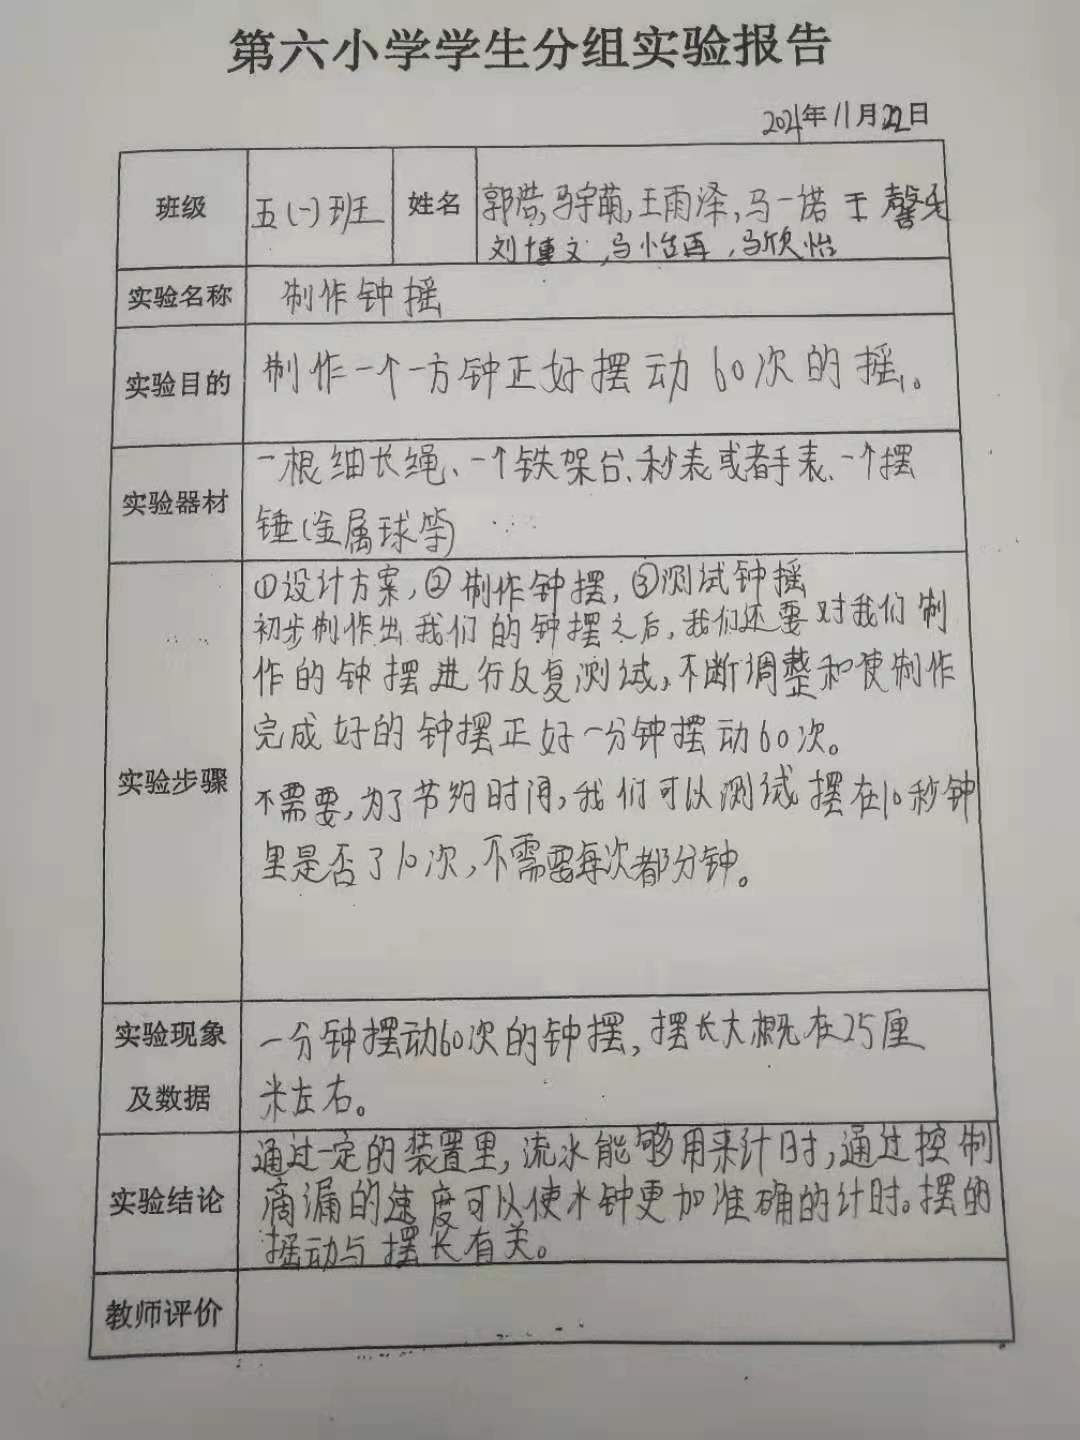 第六小学学生分组实验报告
2021年11月22日
班级 五(一)班 姓名 郭浩,马宇菌,王雨泽,马一诺 王馨
刘博文,马怡再,马欣怡
实验名称 制作钟摇
实验目的 制作一个一方钟正好摆动60次的摇。
实验器材 一根细长绳、一个铁架台、秒表或者手表、一个摆
锤(金属球等)
实验步骤 ①设计方案,②制作钟摆,③测试钟摇
初步制作出我们的钟摆之后,我们还要对我们制
作的钟摆进行反复测试,不断调整和使制作
完成好的钟摆正好一分钟摆动60次。
不需要,为了节约时间,我们可以测试摆在10秒钟
里是否了10次,不需要每次都分钟。
实验现象
及数据
一分钟摆动60次的钟摆,摆长大概在25厘
米左右。
实验结论 通过一定的装置里,流水能够用来计时,通过控制
滴漏的速度可以使水钟更加准确的计时。摆的
摇动与摆长有关。
教师评价